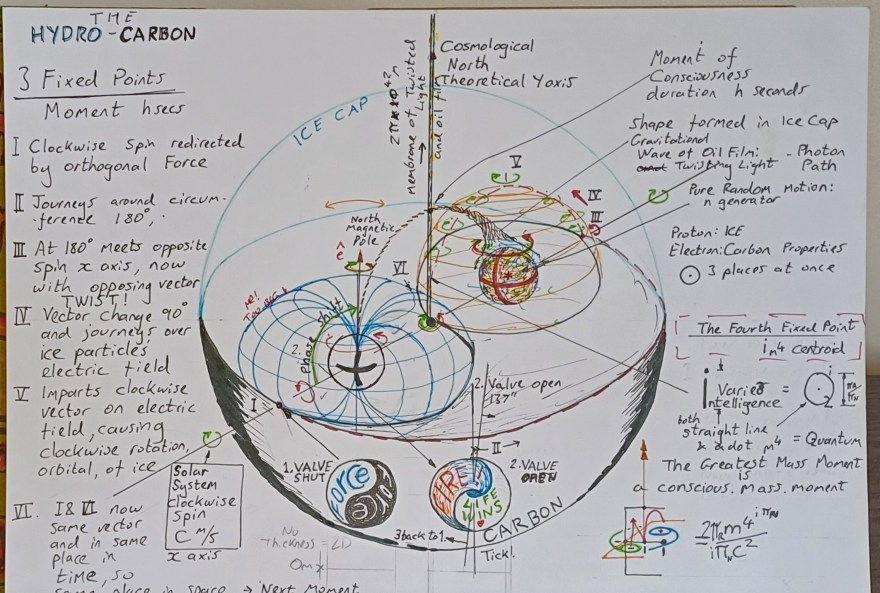 THE
HYDRO-CARBON
3 Fixed Points
Moment h secs
I Clockwise Spin redirected
by orthogonal Force
II Journeys around circum-
ference 180°,
III At 180° Meets opposite
spin x axis, now
with opposing vector
TWIST!
IV Vector Change 90°
and journeys over
ice particles
electric field
V Imparts clockwise
vector on electric
field, causing
clockwise rotation,
orbital, of ice
VI. I & VI now
same vector
and in same
place in
time, so
same place in space → Next Moment
Solar
System
clockwise
Spin
C m/s
x axis
ICE CAP
membrane of Twisted
Light
and oil film
Cosmological
North
Theoretical Y axis
North
Magnetic
Pole
ê
VI
V
IV
III
2.
Phase shift
I
1. VALVE
SHUT
Force
FIRE!
LIFE
WINS
2. Valve open
137"
II→
2. VALVE
OPEN
3 back to 1.
Tick!
CARBON
No
Thickness = 2D
0m x
Moment of
Consciousness
duration h seconds
Shape formed in Ice Cap
Gravitational
Wave of Oil Film:
Twisting Light - Photon
Path
Pure Random Motion:
n generator
Proton: ICE
Electron: Carbon Properties
3 places at once
The Fourth Fixed Point
im4 centroid
i Varied =
Intelligence
both
straight line
& a dot m4 = Quantum
The Greatest Mass Moment
is
a conscious. mass. moment